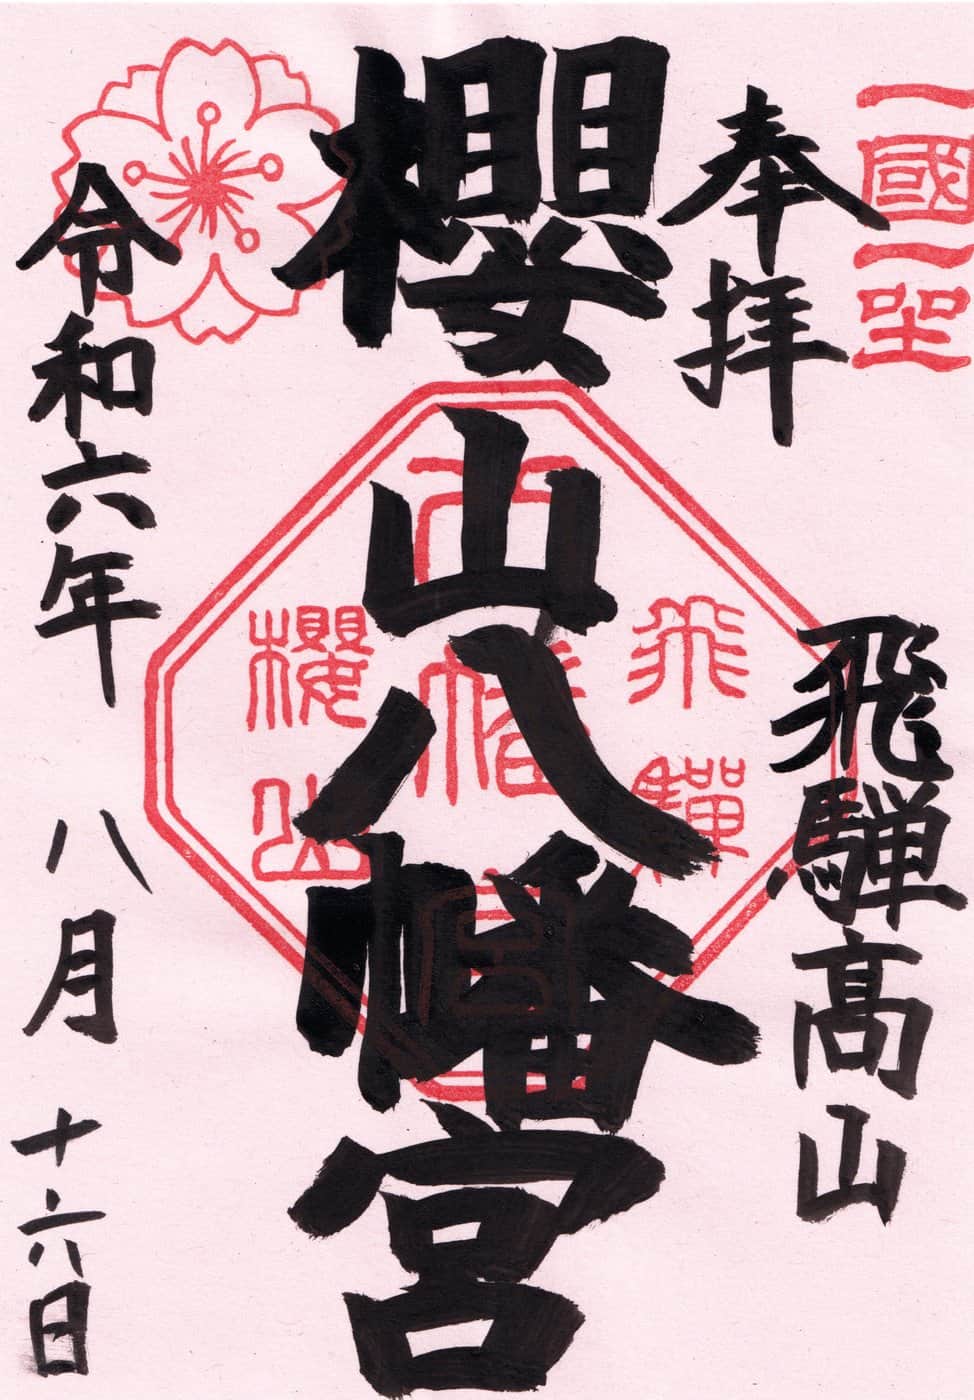 一國一宮
奉拝
飛騨高山
櫻山八幡宮
飛驒
八幡宮
櫻山
令和六年
八月
十六日